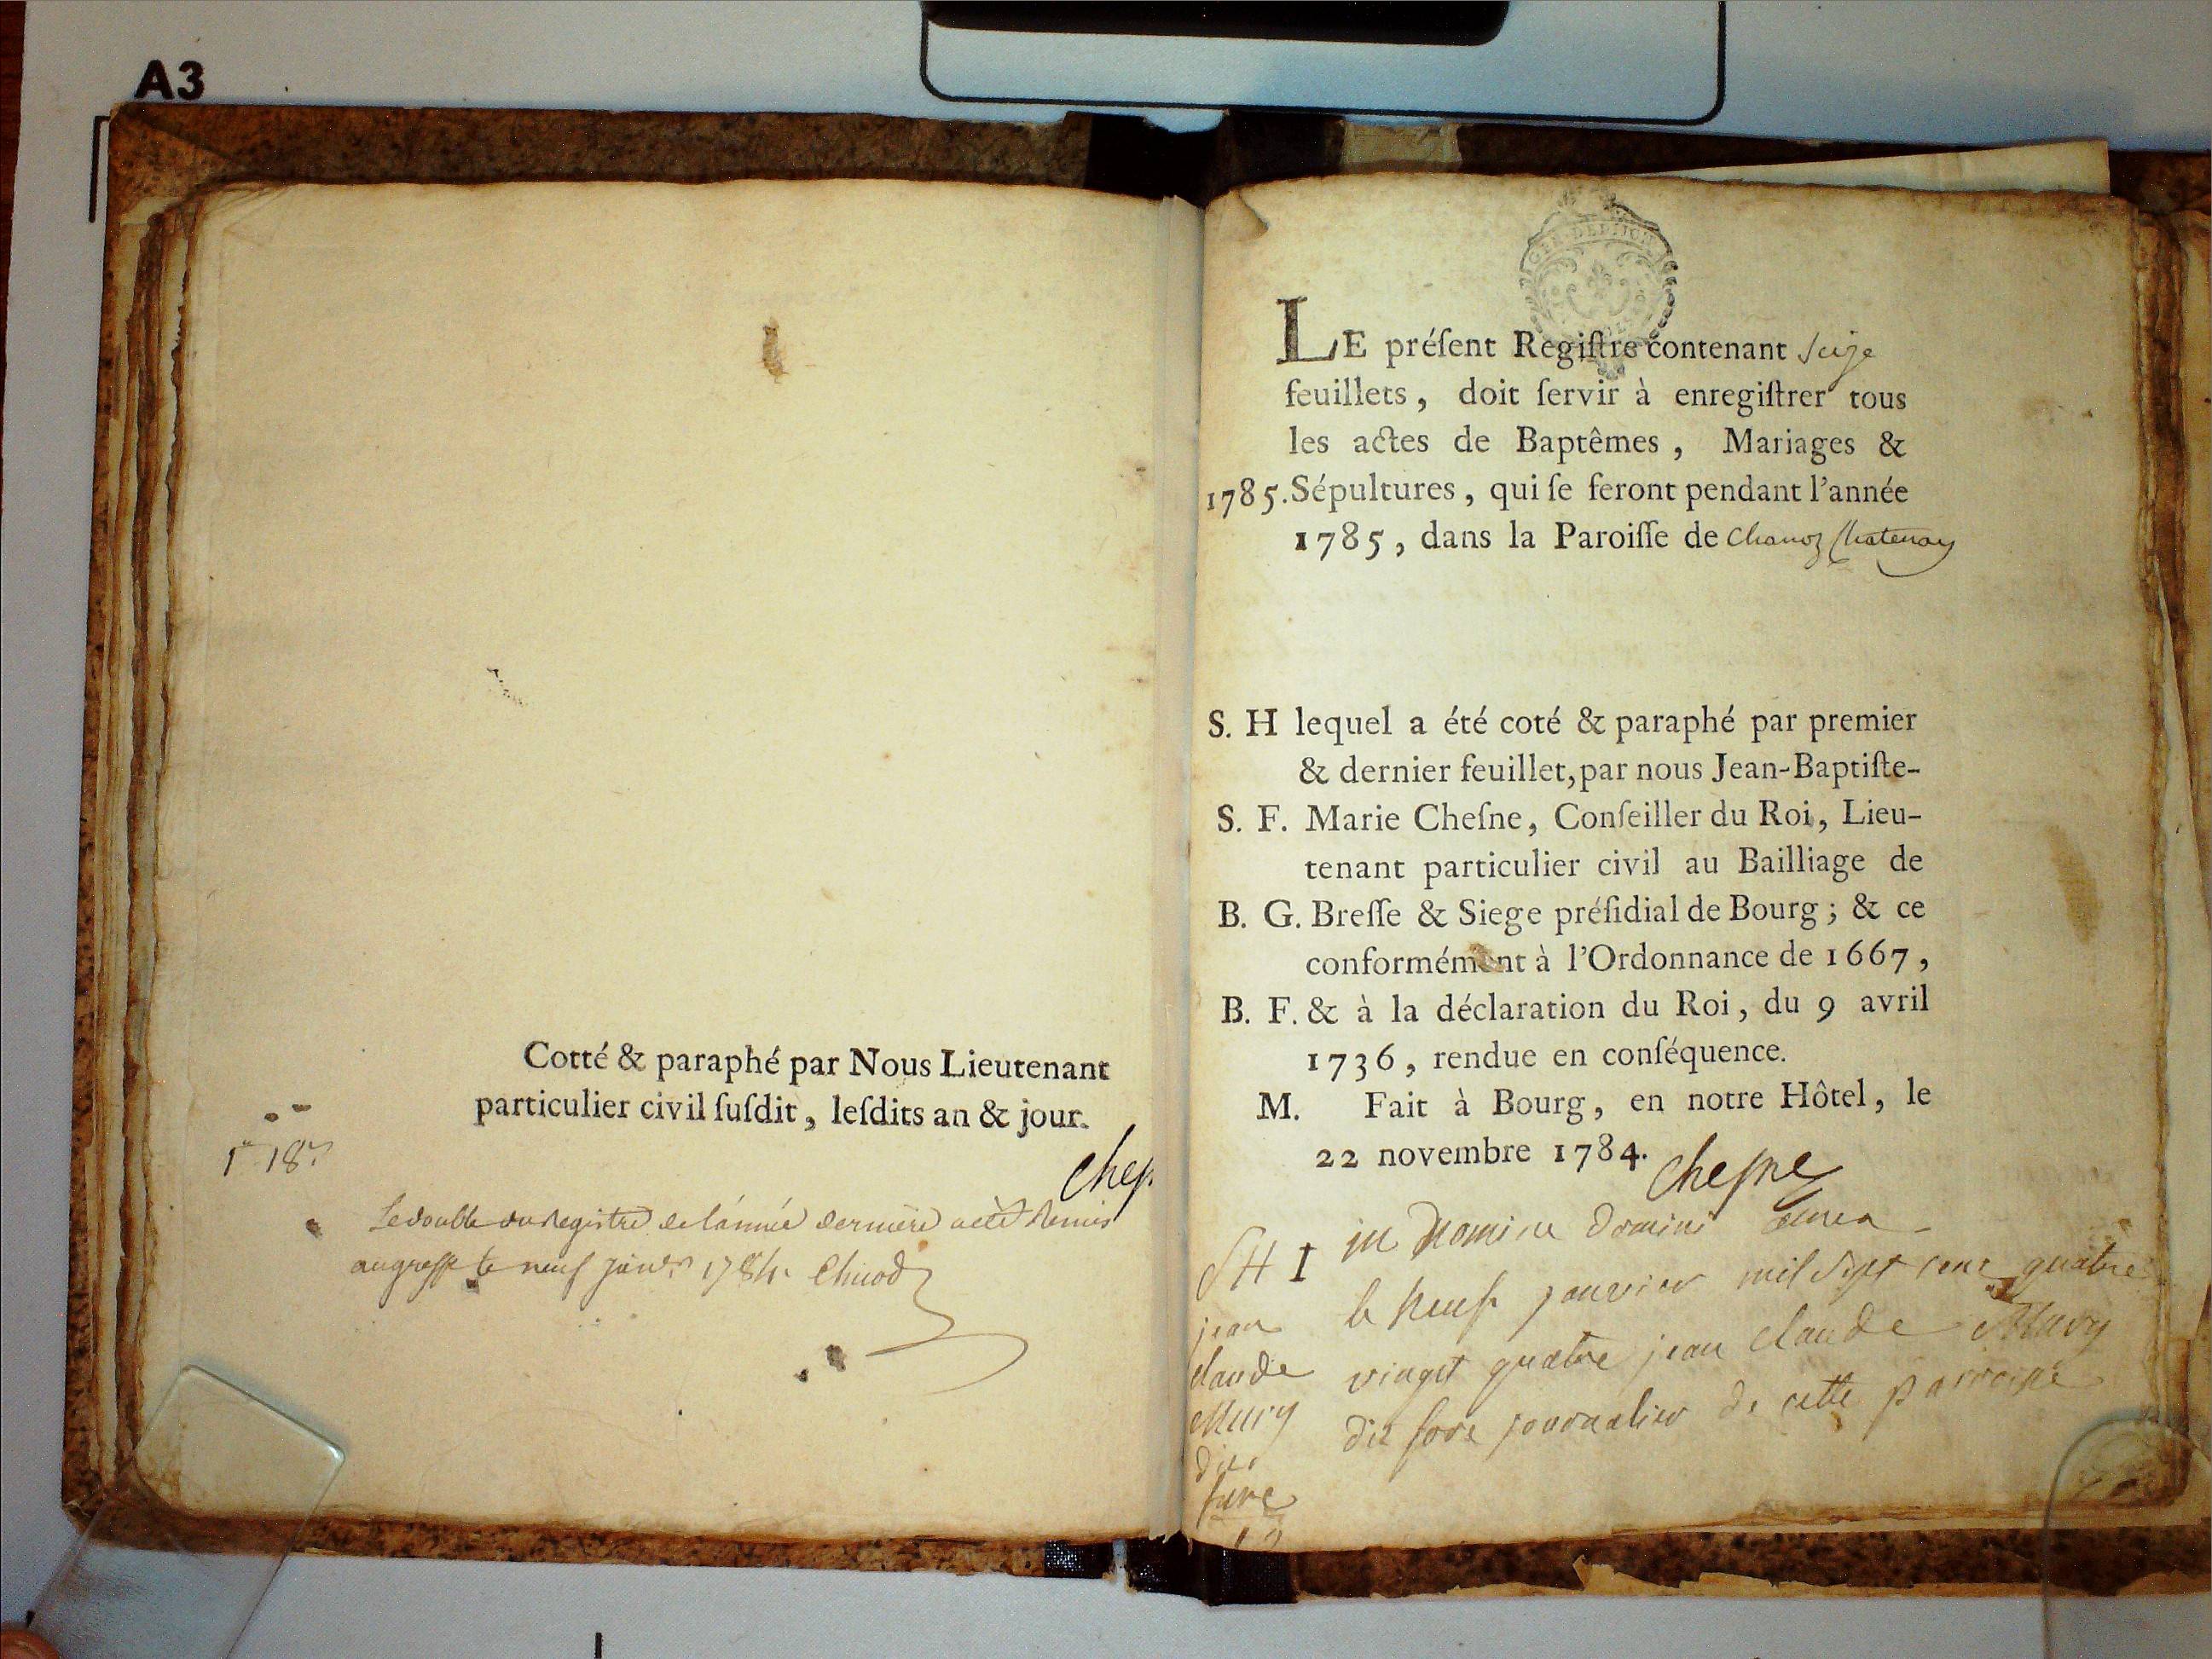 A3
Cotté & paraphé par Nous Lieutenant
particulier civil ſuſdit, leſdits an & jour.
Cheſ
Le double du Registre de l'année derniere a eté Remis
au greffe le neuf janv. 1784.
LE préſent Regiſtre contenant seize
feuillets, doit ſervir à enregiſtrer tous
les actes de Baptêmes, Mariages &
1785. Sépultures, qui ſe feront pendant l'année
1785, dans la Paroiſſe de Chanoz Chatenay
S. H lequel a été coté & paraphé par premier
& dernier feuillet, par nous Jean-Baptiſte-
S. F. Marie Cheſne, Conſeiller du Roi, Lieu-
tenant particulier civil au Bailliage de
B. G. Breſſe & Siege préſidial de Bourg; & ce
conformément à l'Ordonnance de 1667,
B. F. & à la déclaration du Roi, du 9 avril
1736, rendue en conſéquence.
M. Fait à Bourg, en notre Hôtel, le
22 novembre 1784.
Cheſne
in Nomine Domini amen
SH I le Neuf janvier mil sept cent quatre
vingt quatre jean claude Mury
dit fore journalier de cette parroisse
jean
claude
Mury
dit